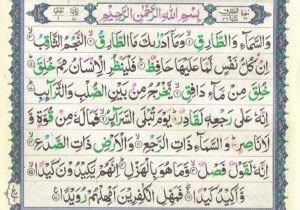 بِسْمِ اللهِ الرَّحْمٰنِ الرَّحِيْمِ
وَالسَّمَآءِ وَالطَّارِقِ وَمَآ اَدْرٰىكَ مَا الطَّارِقُ النَّجْمُ الثَّاقِبُ
اِنْ كُلُّ نَفْسٍ لَّمَّا عَلَيْهَا حَافِظٌ فَلْيَنْظُرِ الْاِنْسَانُ مِمَّ خُلِقَ
خُلِقَ مِنْ مَّآءٍ دَافِقٍ يَّخْرُجُ مِنْ بَيْنِ الصُّلْبِ وَالتَّرَآئِبِ
اِنَّهٗ عَلٰى رَجْعِهٖ لَقَادِرٌ يَوْمَ تُبْلَى السَّرَآئِرُ فَمَا لَهٗ مِنْ قُوَّةٍ وَّ
لَا نَاصِرٍ وَالسَّمَآءِ ذَاتِ الرَّجْعِ وَالْاَرْضِ ذَاتِ الصَّدْعِ
اِنَّهٗ لَقَوْلٌ فَصْلٌ وَّمَا هُوَ بِالْهَزْلِ اِنَّهُمْ يَكِيْدُوْنَ كَيْدًا
وَّاَكِيْدُ كَيْدًا فَمَهِّلِ الْكٰفِرِيْنَ اَمْهِلْهُمْ رُوَيْدًا